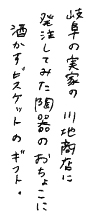 岐阜の実家の 川地商店に
発注してみた陶器のおちょこに
酒かすビスケットのギフト。